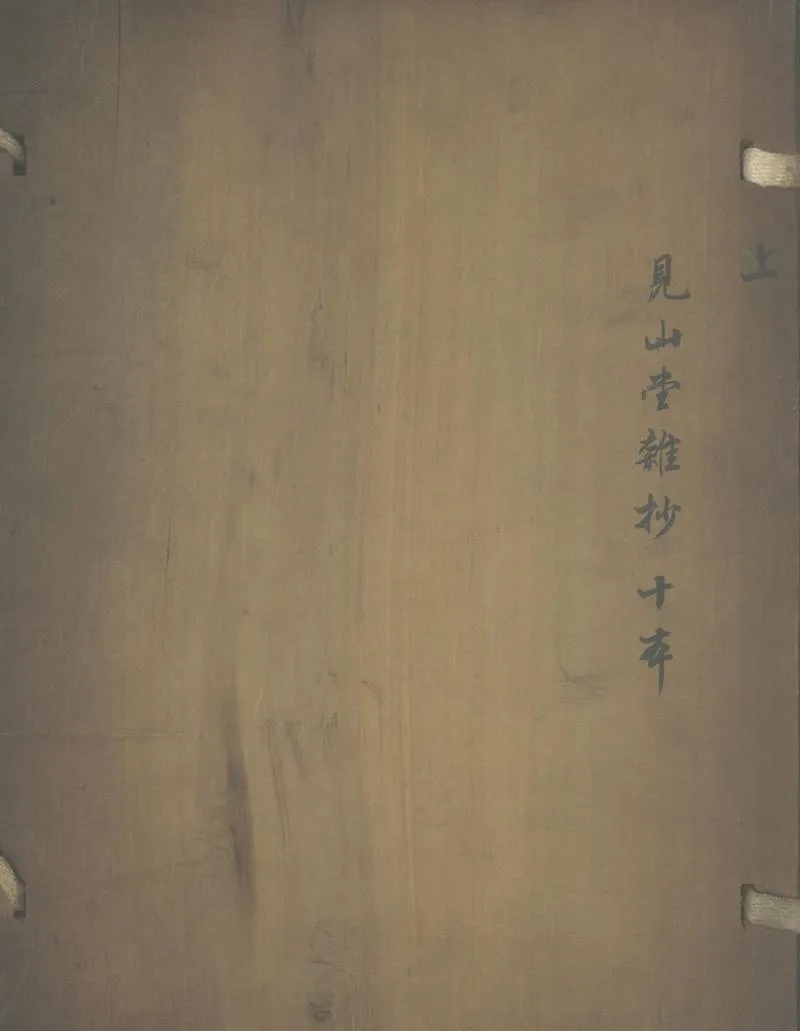 上
見山堂雜抄 十本